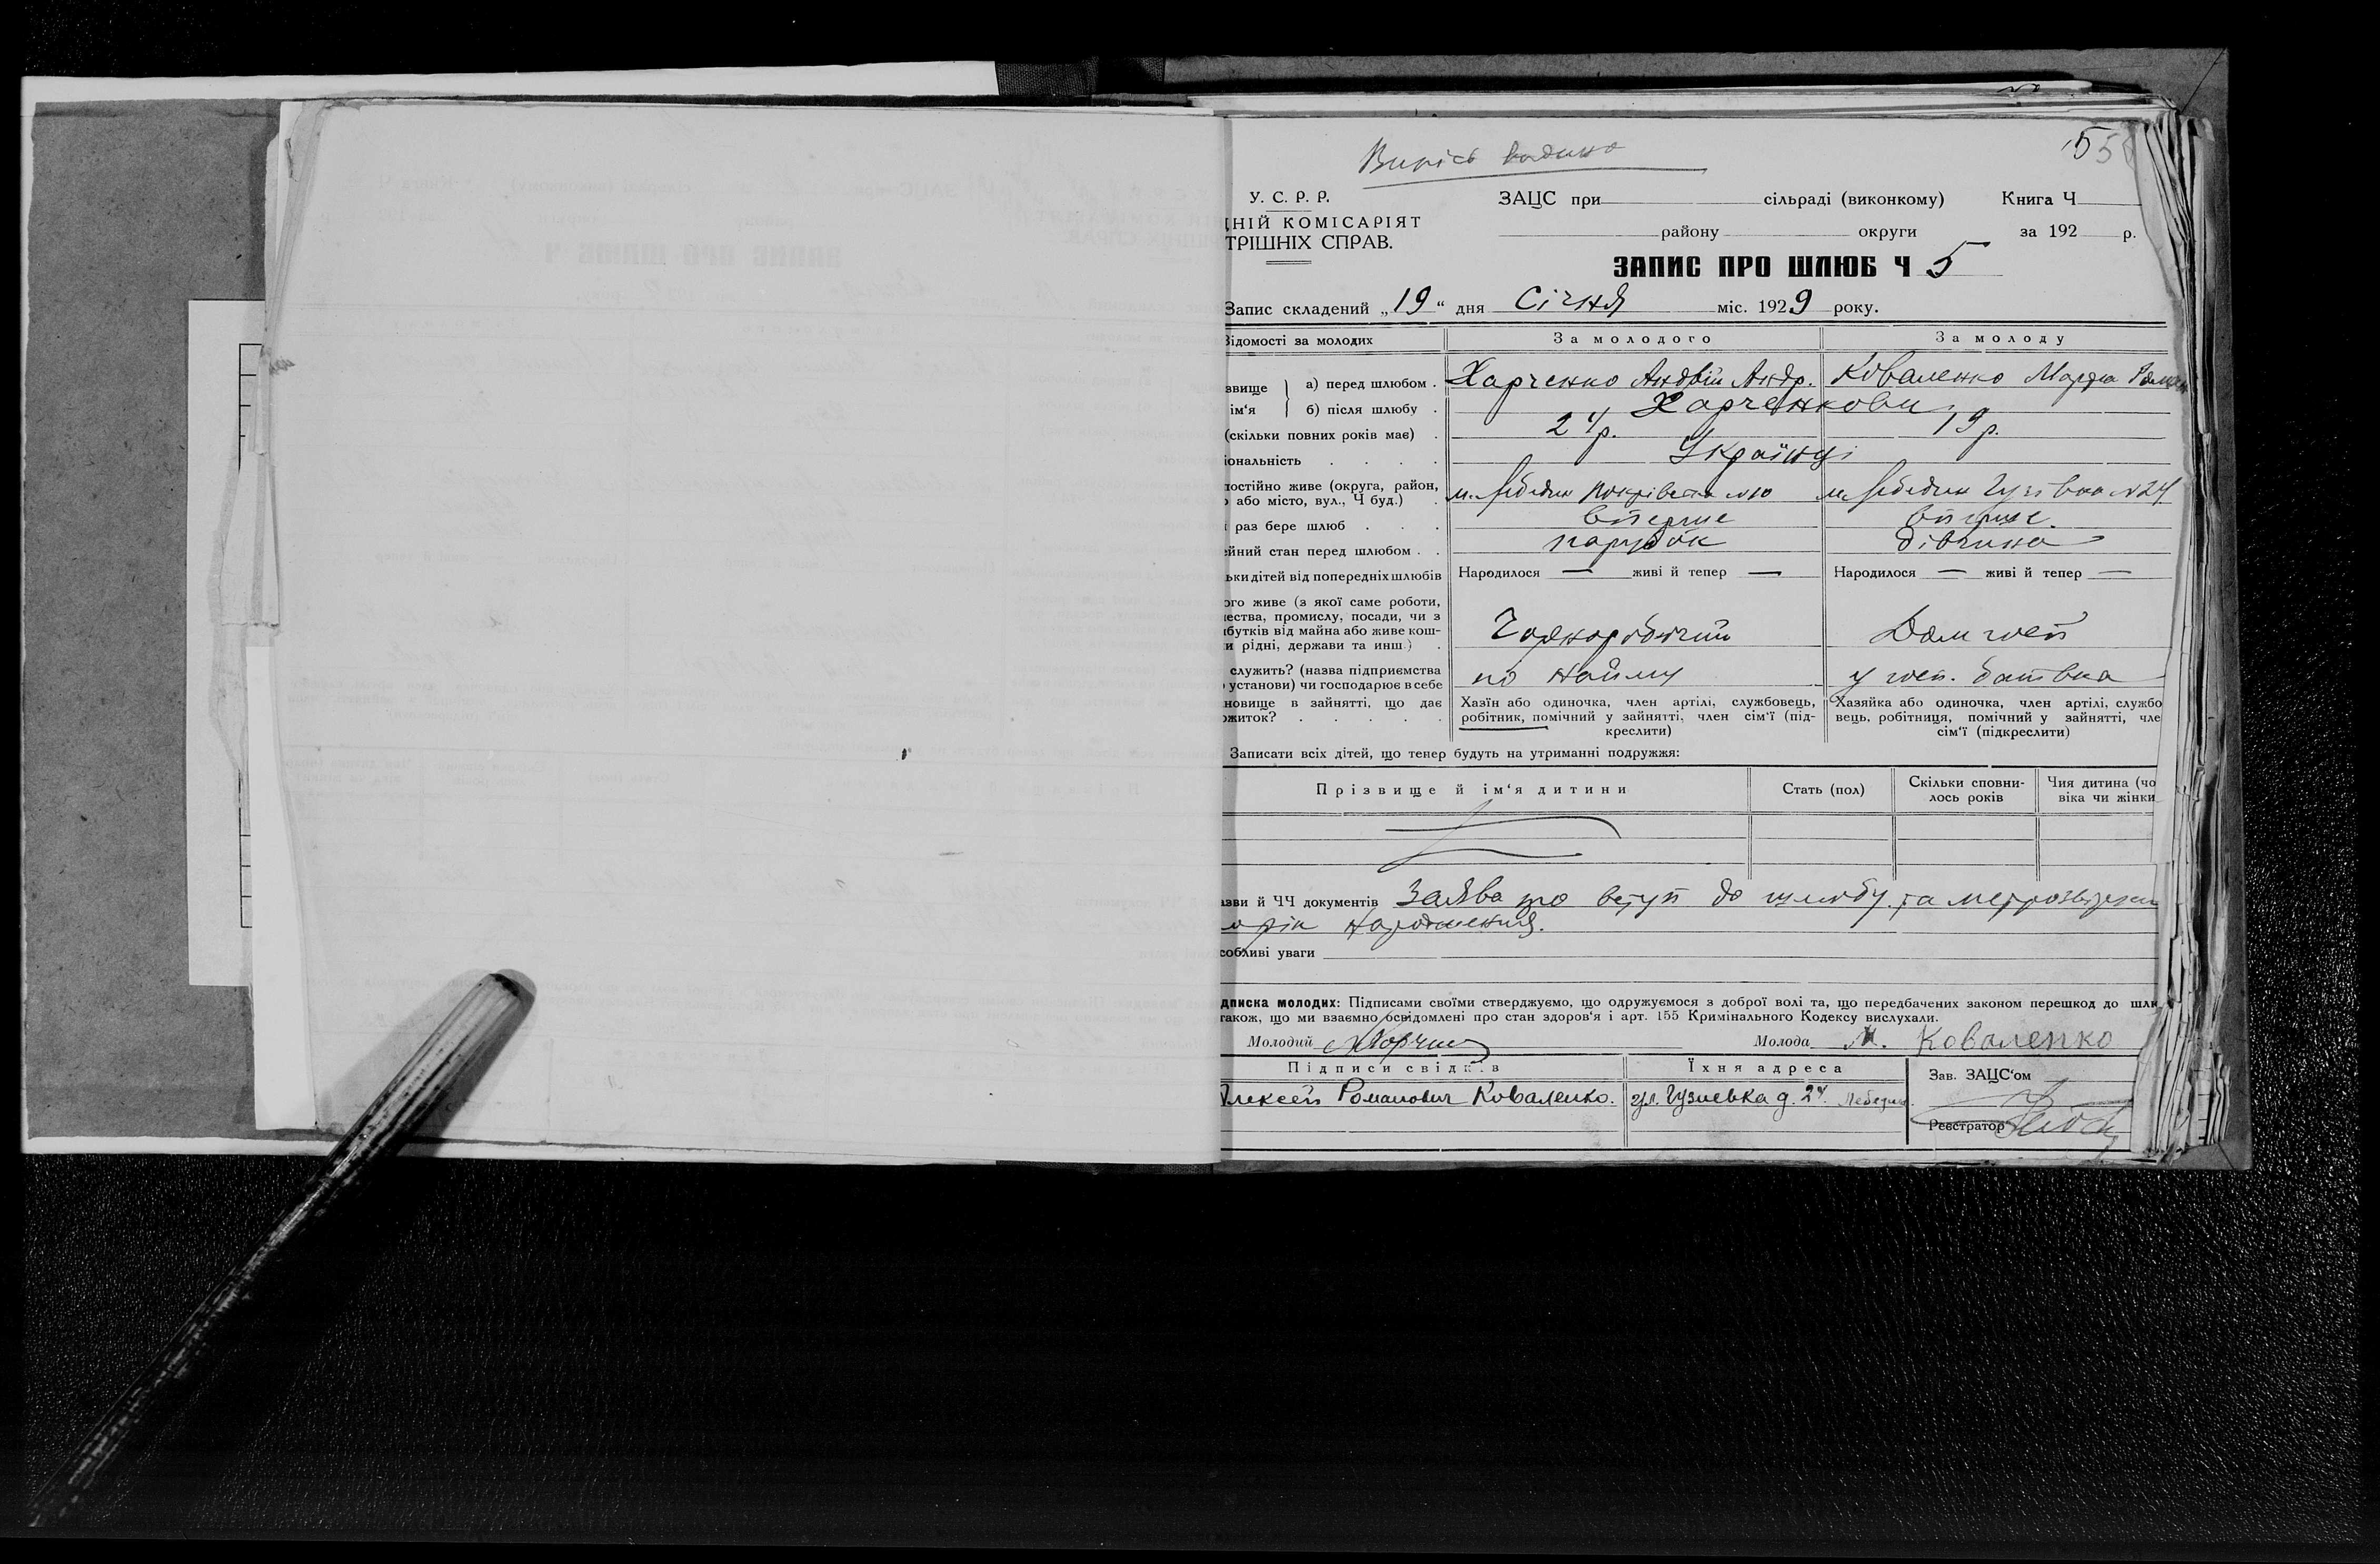 Випись видано
55
У. С. Р. Р.
ДНІЙ КОМІСАРІЯТ
ТРІШНІХ СПРАВ.
ЗАЦС при сільраді (виконкому) Книга Ч
району округи за 192 р.
ЗАПИС ПРО ШЛЮБ Ч 5
Запис складений „19“ дня Січня міс. 1929 року.
Відомості за молодих За молодого За молоду
звище а) перед шлюбом . Харченко Андрій Андр. Коваленко Марфа Роман
ім'я б) після шлюбу . Харченкови
(скільки повних років має) . 24 р. 19 р.
іональність . . . . Українці
постійно живе (округа, район, м. Лебедин Покрівська №10 м. Лебедин Гузіївка №24
о або місто, вул., Ч буд.) .
й раз бере шлюб . . . вперше вперше.
ейний стан перед шлюбом . . парубок дівчина
ьки дітей від попередніх шлюбів Народилося — живі й тепер — Народилося — живі й тепер —
ого живе (з якої саме роботи,
ества, промислу, посади, чи з
ибутків від майна або живе кош- Чорноробочий Дом госп
и рідні, держави та инш.) .
служить? (назва підприємства
о установи) чи господарює в себе по найму у госп. батька
новище в зайнятті, що дає
ожиток? . . . . .
Хазїн або одиночка, член артілі, службовець,
робітник, помічний у зайнятті, член сім'ї (під-
креслити)
Хазяйка або одиночка, член артілі, службо
вець, робітниця, помічний у зайнятті, чле
сім'ї (підкреслити)
Записати всіх дітей, що тепер будуть на утриманні подружжя:
Прізвище й ім'я дитини Стать (пол) Скільки сповни-
лось років Чия дитина (чо
віка чи жінки
азви й ЧЧ документів Заява про вступ до шлюбу та
о рік народження.
собливі уваги
дписка молодих: Підписами своїми стверджуємо, що одружуємося з доброї волі та, що передбачених законом перешкод до шлю
також, що ми взаємно освідомлені про стан здоров'я і арт. 155 Кримінального Кодексу вислухали.
Молодий Молода М. Коваленко
Підписи свідків Їхня адреса Зав. ЗАЦС'ом
Алексей Романович Коваленко. ул. Гузиевка д. 24. Лебедин.
Реєстратор